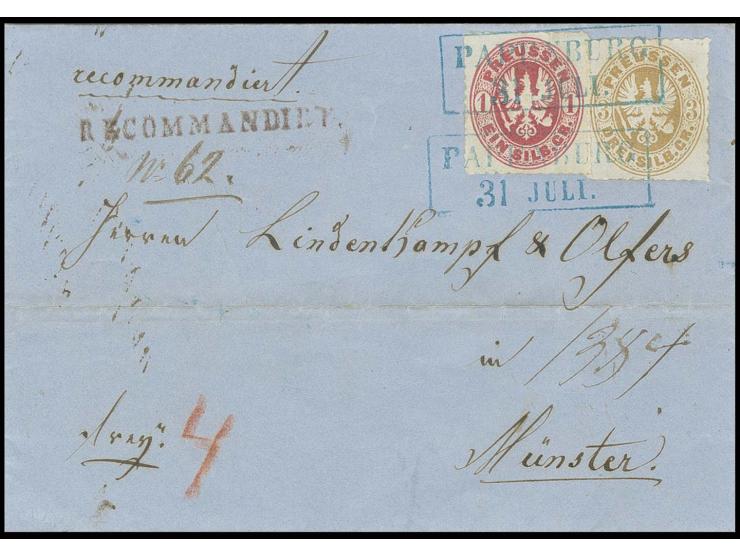 recommandirt.
RECOMMANDIRT.
No 62.
PAPENBURG
31 JULI.
PREUSSEN
1 1
EIN SILB.GR.
PREUSSEN
3 3
DREI SILB.GR.
PAPENBURG
31 JULI.
Herren Lindenkampf & Olfers
in
Münster.
frey.
4